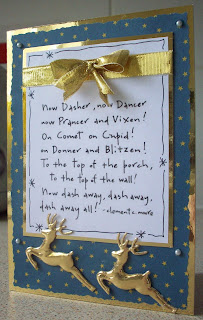 now Dasher, now Dancer
now Prancer and Vixen!
On Comet on Cupid!
on Donner and Blitzen!
To the top of the porch,
to the top of the wall!
Now dash away, dash away,
dash away all! -clement c moore